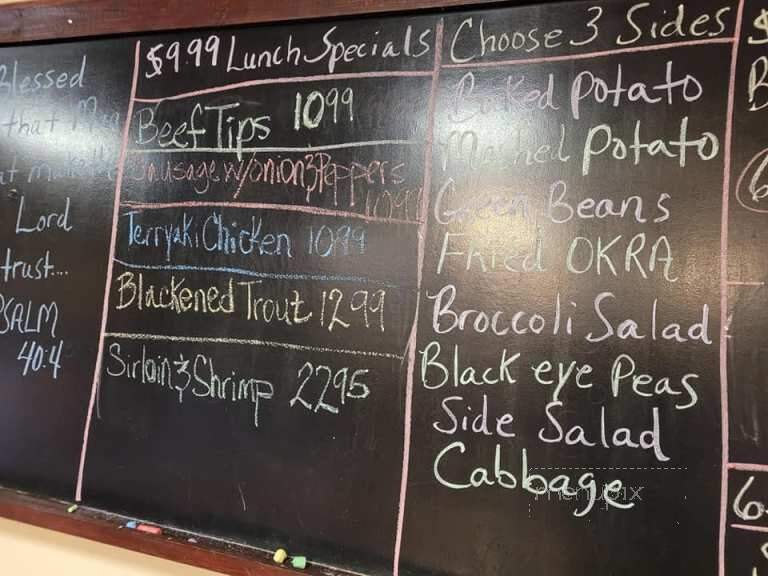 Blessed
that
Lord
trust...
PSALM
40:4
$9.99 Lunch Specials
Beef Tips 10 99
Sausage w/onion & Peppers
10 99
Terryaki Chicken 10 99
Blackened Trout 12 99
Sirloin & Shrimp 22 95
Choose 3 Sides
Baked Potato
Mashed Potato
Green Beans
Fried OKRA
Broccoli Salad
Black eye Peas
Side Salad
Cabbage
menupix